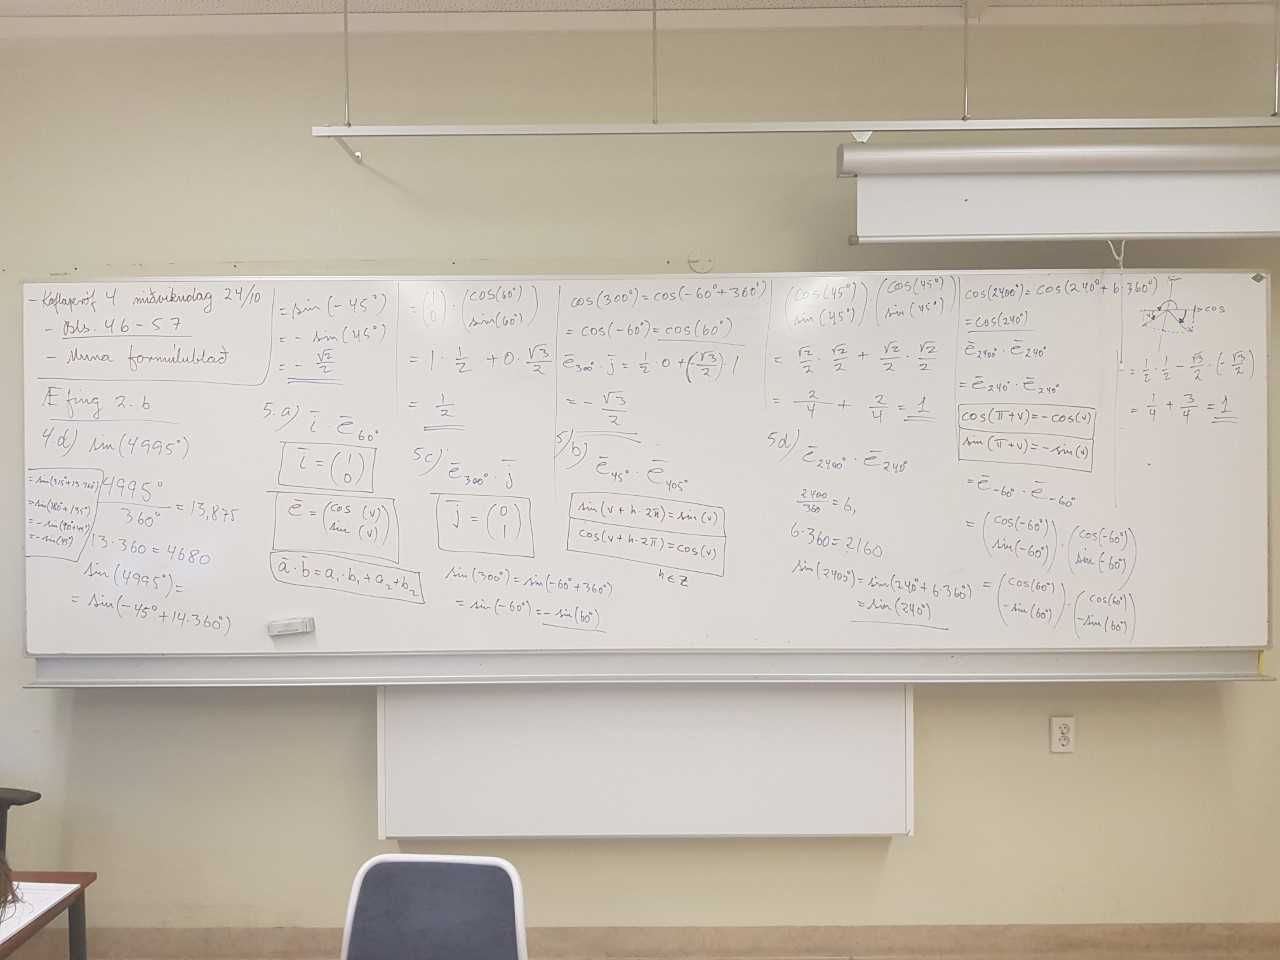 - Kaflapróf 4 miðvikudag 24/10
- Bls. 46 - 57
- Muna formúlublað
Æfing 2.b
4.d) sin(4995°)
4995° / 360° = 13,875
13·360 = 4680
sin(4995°) =
= sin(-45° + 14·360°)
= sin(315° + 13·360°)
= sin(180° + 135°)
= - sin(45°)
= sin(-45°)
= - sin(45°)
= - √2/2
5.a) i̅ · e̅₆₀°
i̅ = (1 0)
e̅ = (cos(v) sin(v))
a̅ · b̅ = a₁·b₁ + a₂·b₂
= (1 0) · (cos(60°) sin(60°))
= 1 · 1/2 + 0 · √3/2
= 1/2
5c) e̅₃₀₀° · j̅
j̅ = (0 1)
sin(300°) = sin(-60° + 360°)
= sin(-60°) = - sin(60°)
cos(300°) = cos(-60° + 360°)
= cos(-60°) = cos(60°)
e̅₃₀₀° · j̅ = 1/2 · 0 + (-√3/2) · 1
= - √3/2
5/b) e̅₄₅° · e̅₄₀₅°
sin(v + n·2π) = sin(v)
cos(v + n·2π) = cos(v)
n ∈ Z
(cos(45°) sin(45°)) · (cos(45°) sin(45°))
= √2/2 · √2/2 + √2/2 · √2/2
= 2/4 + 2/4 = 1
5d) e̅₂₄₀₀° · e̅₂₄₀°
2400/360 = 6,
6·360 = 2160
sin(2400°) = sin(240° + 6·360°)
= sin(240°)
cos(2400°) = cos(240° + 6·360°)
= cos(240°)
e̅₂₄₀₀° · e̅₂₄₀°
= e̅₂₄₀° · e̅₂₄₀°
cos(π+v) = -cos(v)
sin(π+v) = -sin(v)
= e̅₋₆₀° · e̅₋₆₀°
= (cos(-60°) sin(-60°)) · (cos(-60°) sin(-60°))
= (cos(60°) -sin(60°)) · (cos(60°) -sin(60°))
cos
= 1/2 · 1/2 - √3/2 · (-√3/2)
= 1/4 + 3/4 = 1